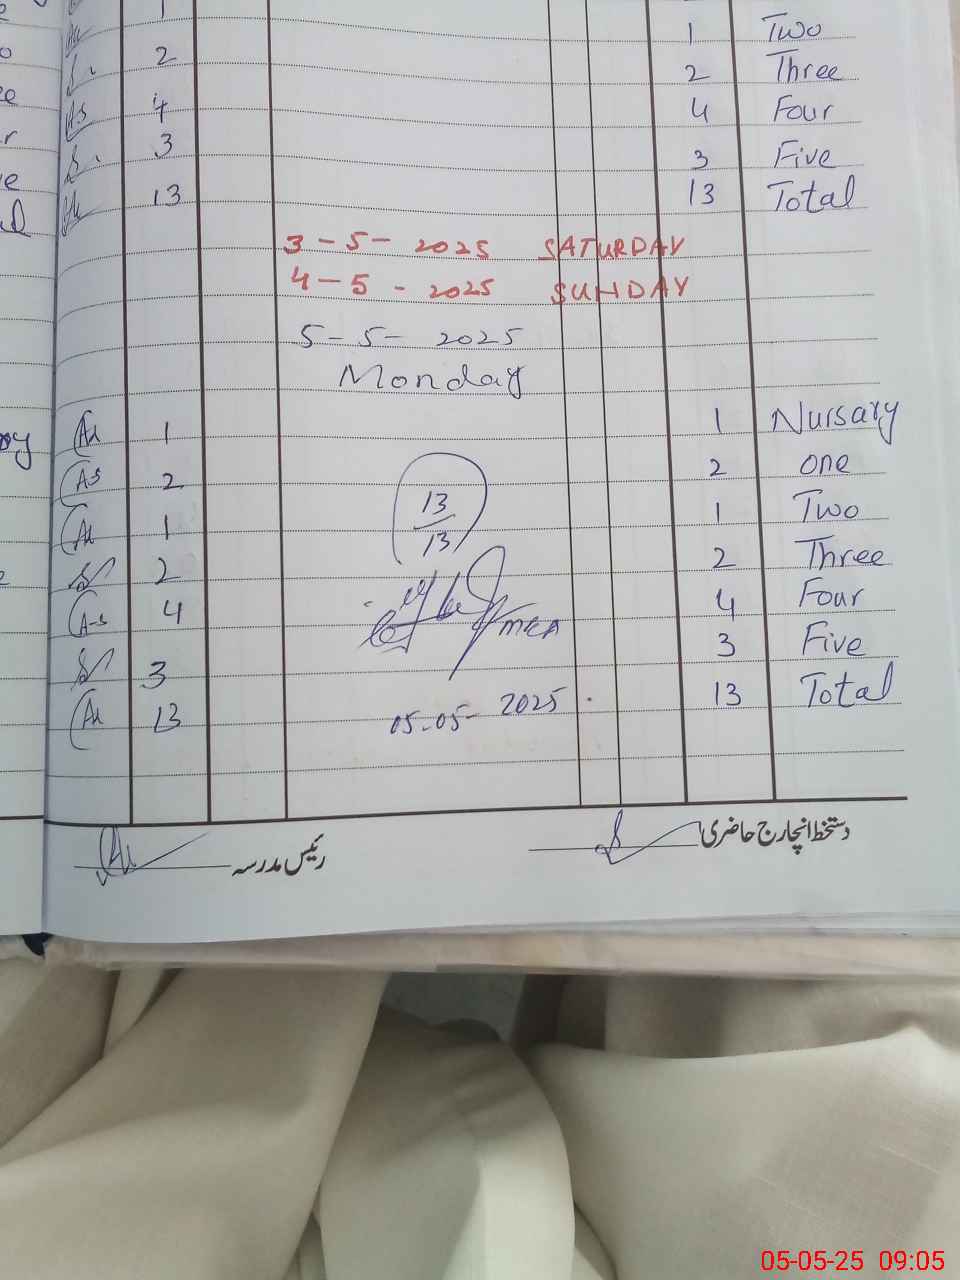 1
2 2 Three
4 4 Four
3 3 Five
13 13 Total
3-5-2025 SATURDAY
4-5-2025 SUNDAY
5-5-2025
Monday
Au 1 1 Nursary
A-S 2 2 one
Au 1 1 Two
2 2 Three
A-S 4 4 Four
3 3 Five
Au 13 13 Total
13
13
MEA
05-05-2025
رئیس مدرسہ
دستخط انچارج حاضری
05-05-25 09:05